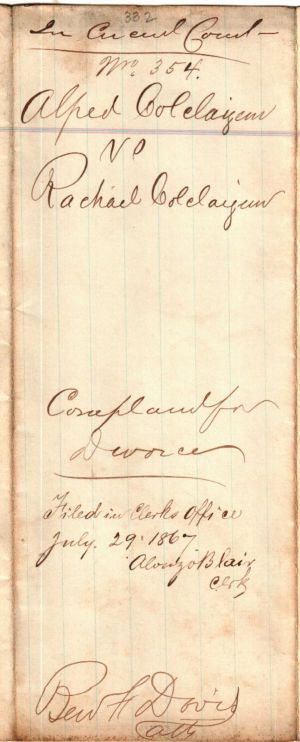 332
In Circuit Court
No. 354.
Alfred Colclazier
vs
Rachael Colclazier
Complaint for
Divorce
Filed in Clerks Office
July. 29. 1867
Alonzo Blair
Clerk
Ben F Davis
Atty